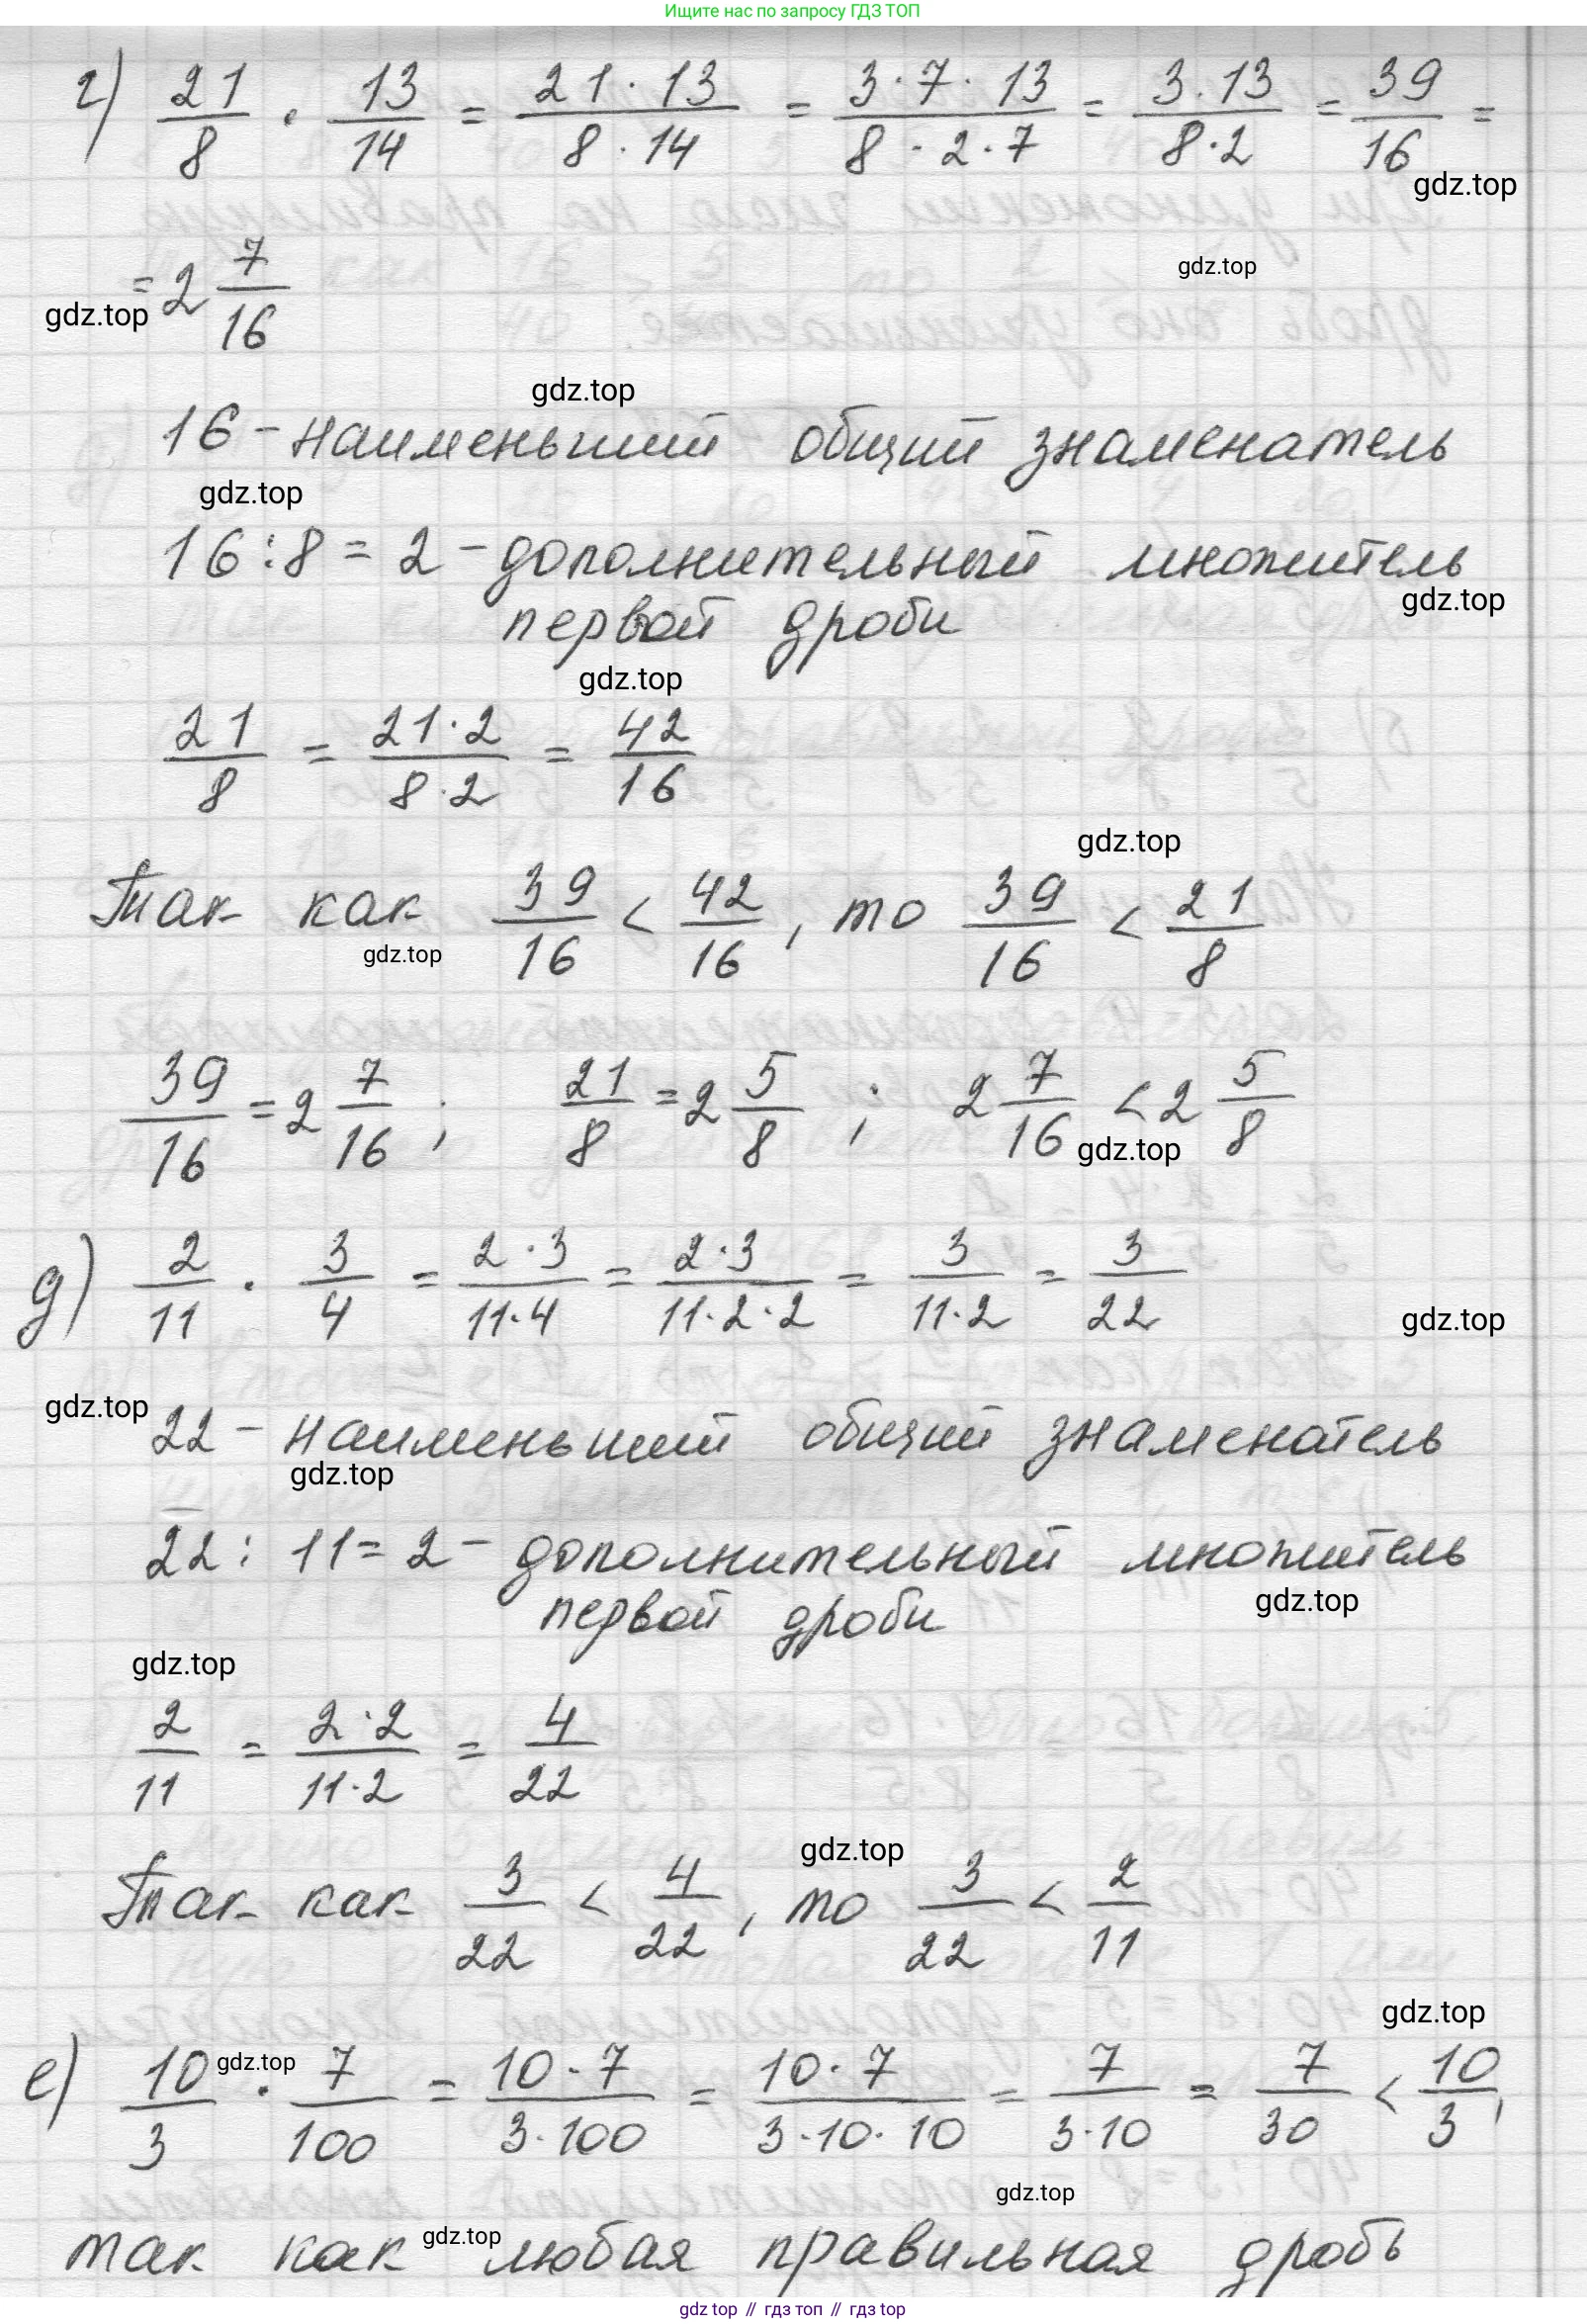 Ищите нас по запросу ГДЗ ТОП
г) 21/8 · 13/14 = 21·13/8·14 = 3·7·13/8·2·7 = 3·13/8·2 = 39/16 =
gdz.top
= 2 7/16
gdz.top
gdz.top
gdz.top
16 - наименьший общий знаменатель
gdz.top
16:8 = 2 - дополнительный множитель
gdz.top
первой дроби
gdz.top
21/8 = 21·2/8·2 = 42/16
gdz.top
Так как 39/16 < 42/16, то 39/16 < 21/8
gdz.top
39/16 = 2 7/16; 21/8 = 2 5/8; 2 7/16 < 2 5/8
gdz.top
д) 2/11 · 3/4 = 2·3/11·4 = 2·3/11·2·2 = 3/11·2 = 3/22
gdz.top
gdz.top
22 - наименьший общий знаменатель
gdz.top
22 : 11 = 2 - дополнительный множитель
gdz.top
первой дроби
gdz.top
2/11 = 2·2/11·2 = 4/22
gdz.top
Так как 3/22 < 4/22, то 3/22 < 2/11
gdz.top
е) 10/3 · 7/100 = 10·7/3·100 = 10·7/3·10·10 = 7/3·10 = 7/30 < 10/3,
gdz.top
gdz.top
так как любая правильная дробь
gdz.top
gdz top // гдз топ // gdz top